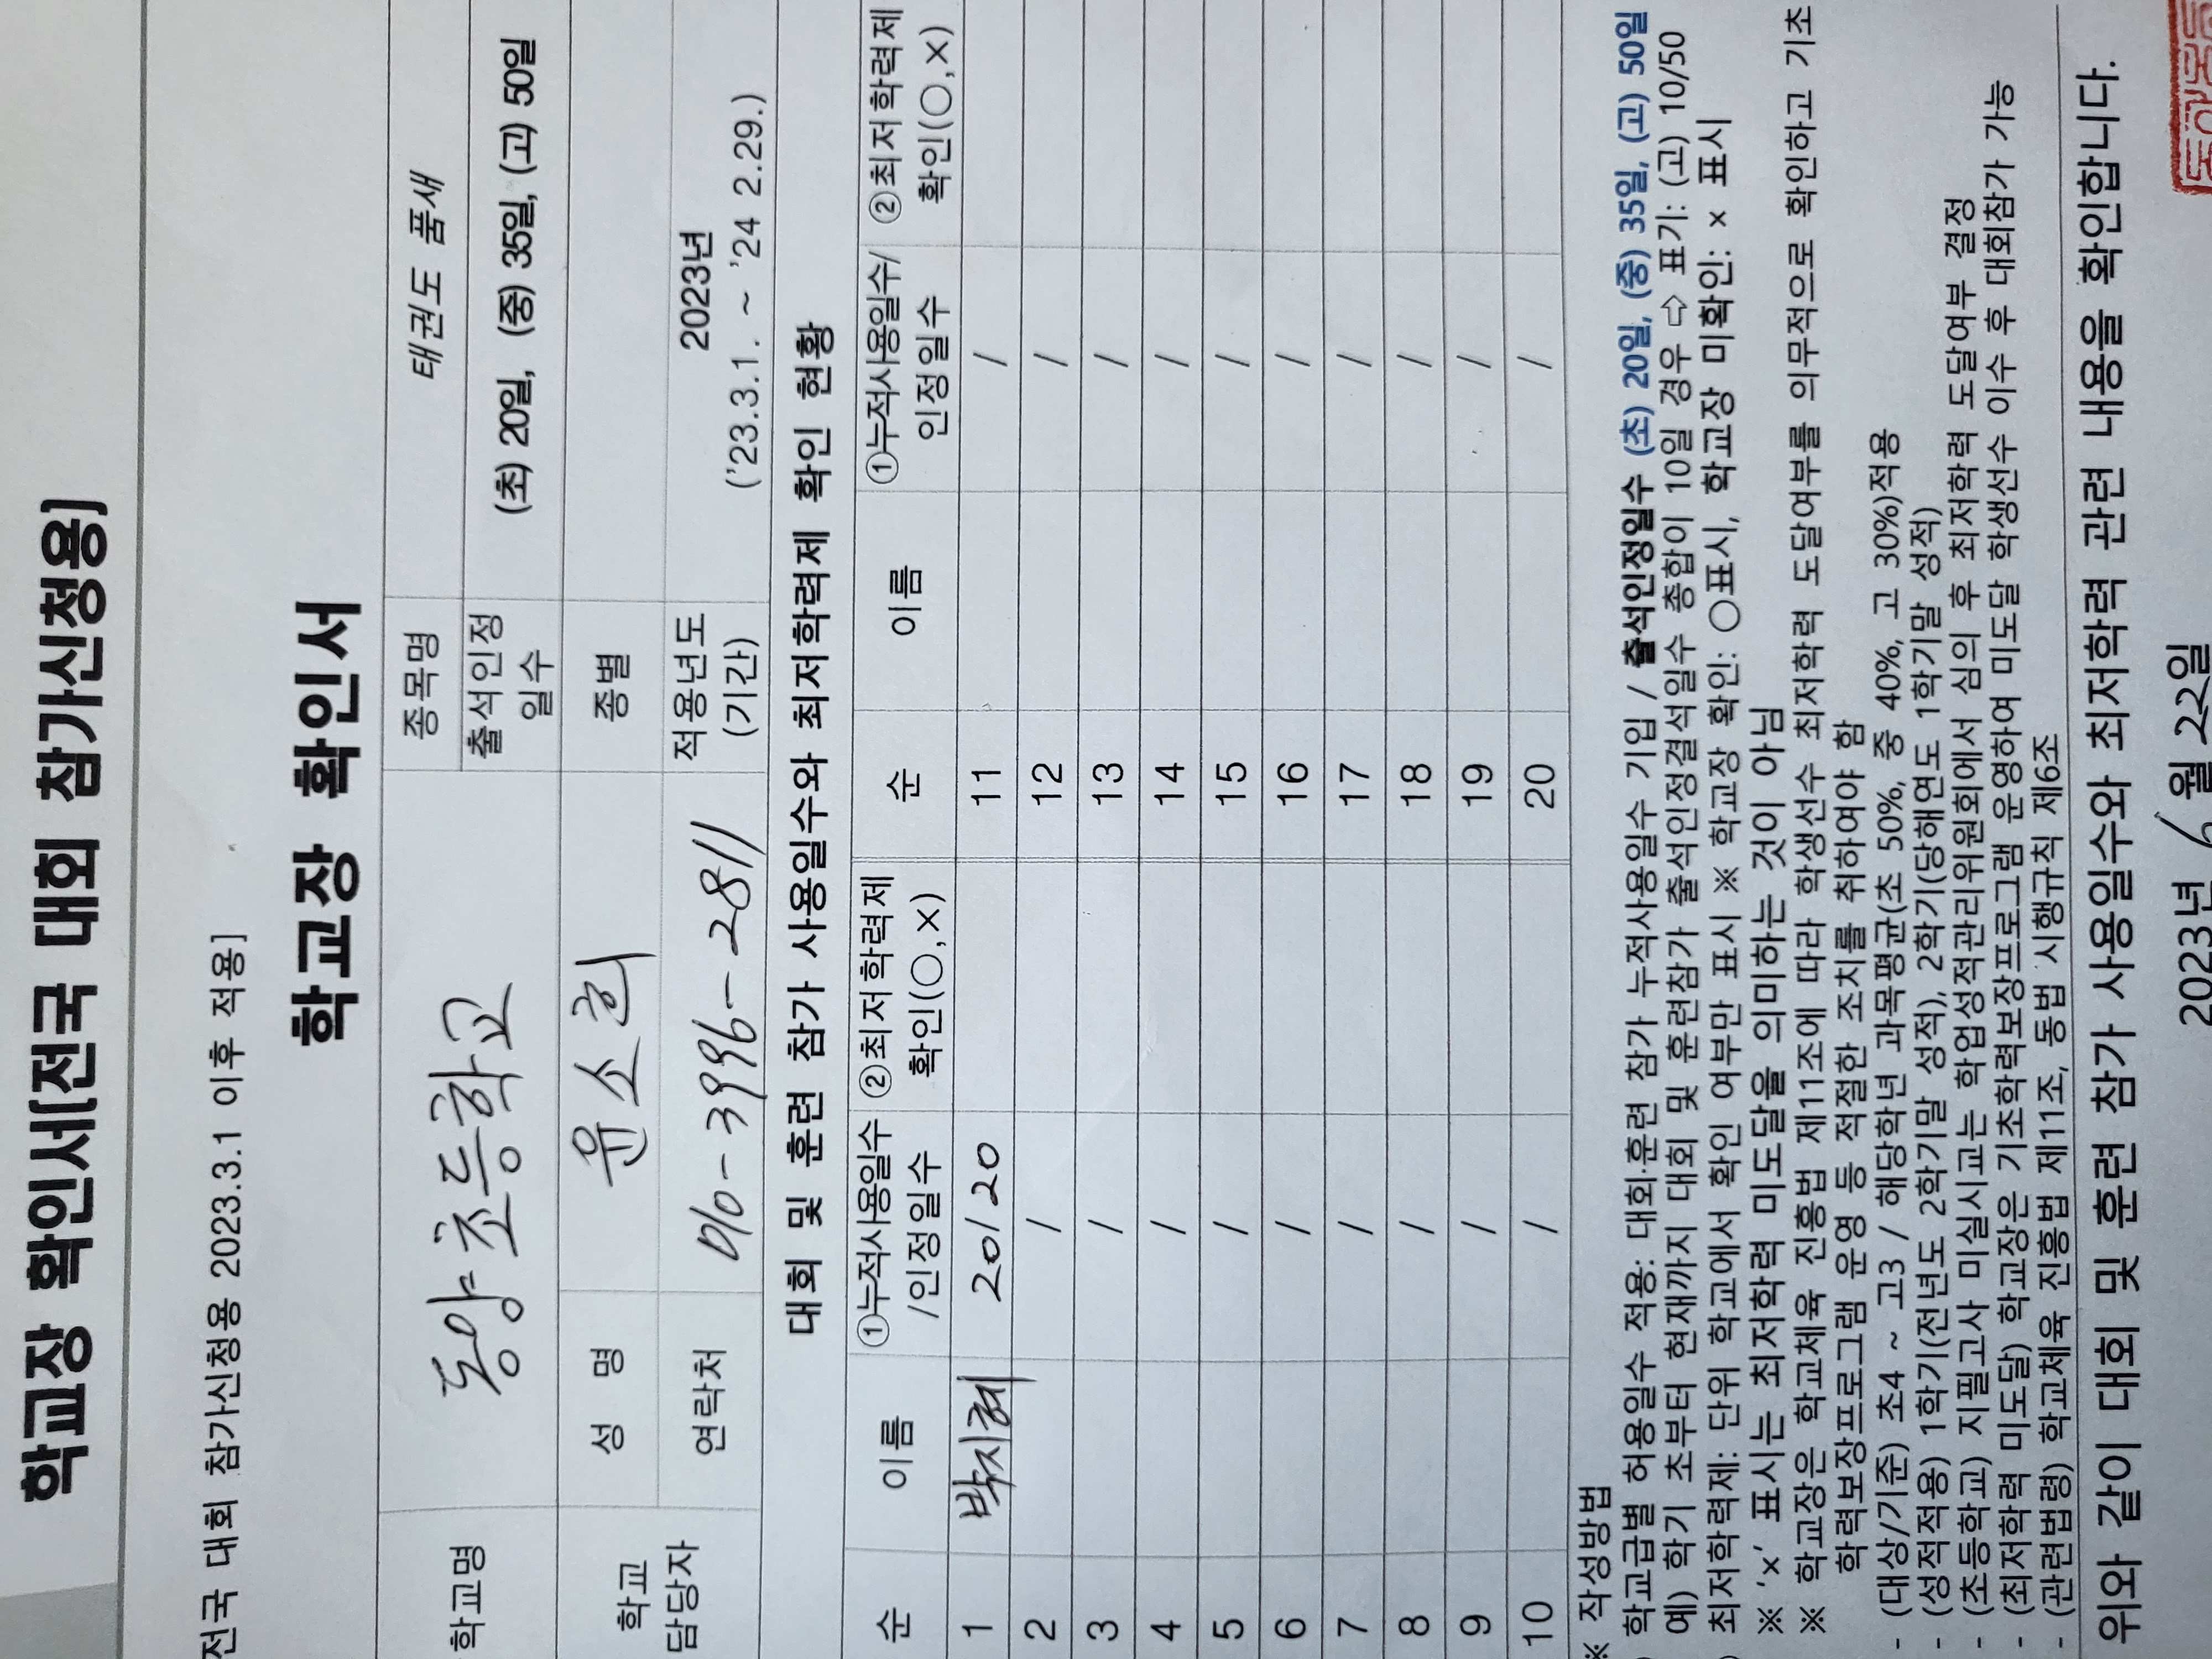 학교장 확인서[전국 대회 참가신청용]
전국 대회 참가신청용 2023.3.1 이후 적용]
학교장 확인서
학교명 동양초등학교 종목명 태권도 품새
출석인정일수 (초) 20일, (중) 35일, (고) 50일
학교 담당자 성 명 윤소희 종별
연락처 010-3996-2811 적용년도 (기간) 2023년 ('23.3.1. ~ '24 2.29.)
대회 및 훈련 참가 사용일수와 최저학력제 확인 현황
순 이름 ①누적사용일수/인정일수 ②최저학력제 확인(○,×) 순 이름 ①누적사용일수/인정일수 ②최저학력제 확인(○,×)
1 박지혜 20/20 11 /
2 / 12 /
3 / 13 /
4 / 14 /
5 / 15 /
6 / 16 /
7 / 17 /
8 / 18 /
9 / 19 /
10 / 20 /
※ 작성방법
) 학교급별 허용일수 적용: 대회·훈련 참가 누적사용일수 기입 / 출석인정일수 (초) 20일, (중) 35일, (고) 50일
예) 학기 초부터 현재까지 대회 및 훈련참가 출석인정결석일수 총합이 10일 경우 ⇨ 표기: (고) 10/50
) 최저학력제: 단위 학교에서 확인 여부만 표시 ※ 학교장 확인: ○표시, 학교장 미확인: × 표시
※ '×' 표시는 최저학력 미도달을 의미하는 것이 아님
※ 학교장은 학교체육 진흥법 제11조에 따라 학생선수 최저학력 도달여부를 의무적으로 확인하고 기초
학력보장프로그램 운영 등 적절한 조치를 취하여야 함
- (대상/기준) 초4 ~ 고3 / 해당학년 과목평균(초 50%, 중 40%, 고 30%)적용
- (성적적용) 1학기(전년도 2학기말 성적), 2학기(당해연도 1학기말 성적)
- (초등학교) 지필고사 미실시교는 학업성적관리위원회에서 심의 후 최저학력 도달여부 결정
- (최저학력 미도달) 학교장은 기초학력보장프로그램 운영하여 미도달 학생선수 이수 후 대회참가 가능
- (관련법령) 학교체육 진흥법 제11조, 동법 시행규칙 제6조
위와 같이 대회 및 훈련 참가 사용일수와 최저학력 관련 내용을 확인합니다.
2023년 6월 22일